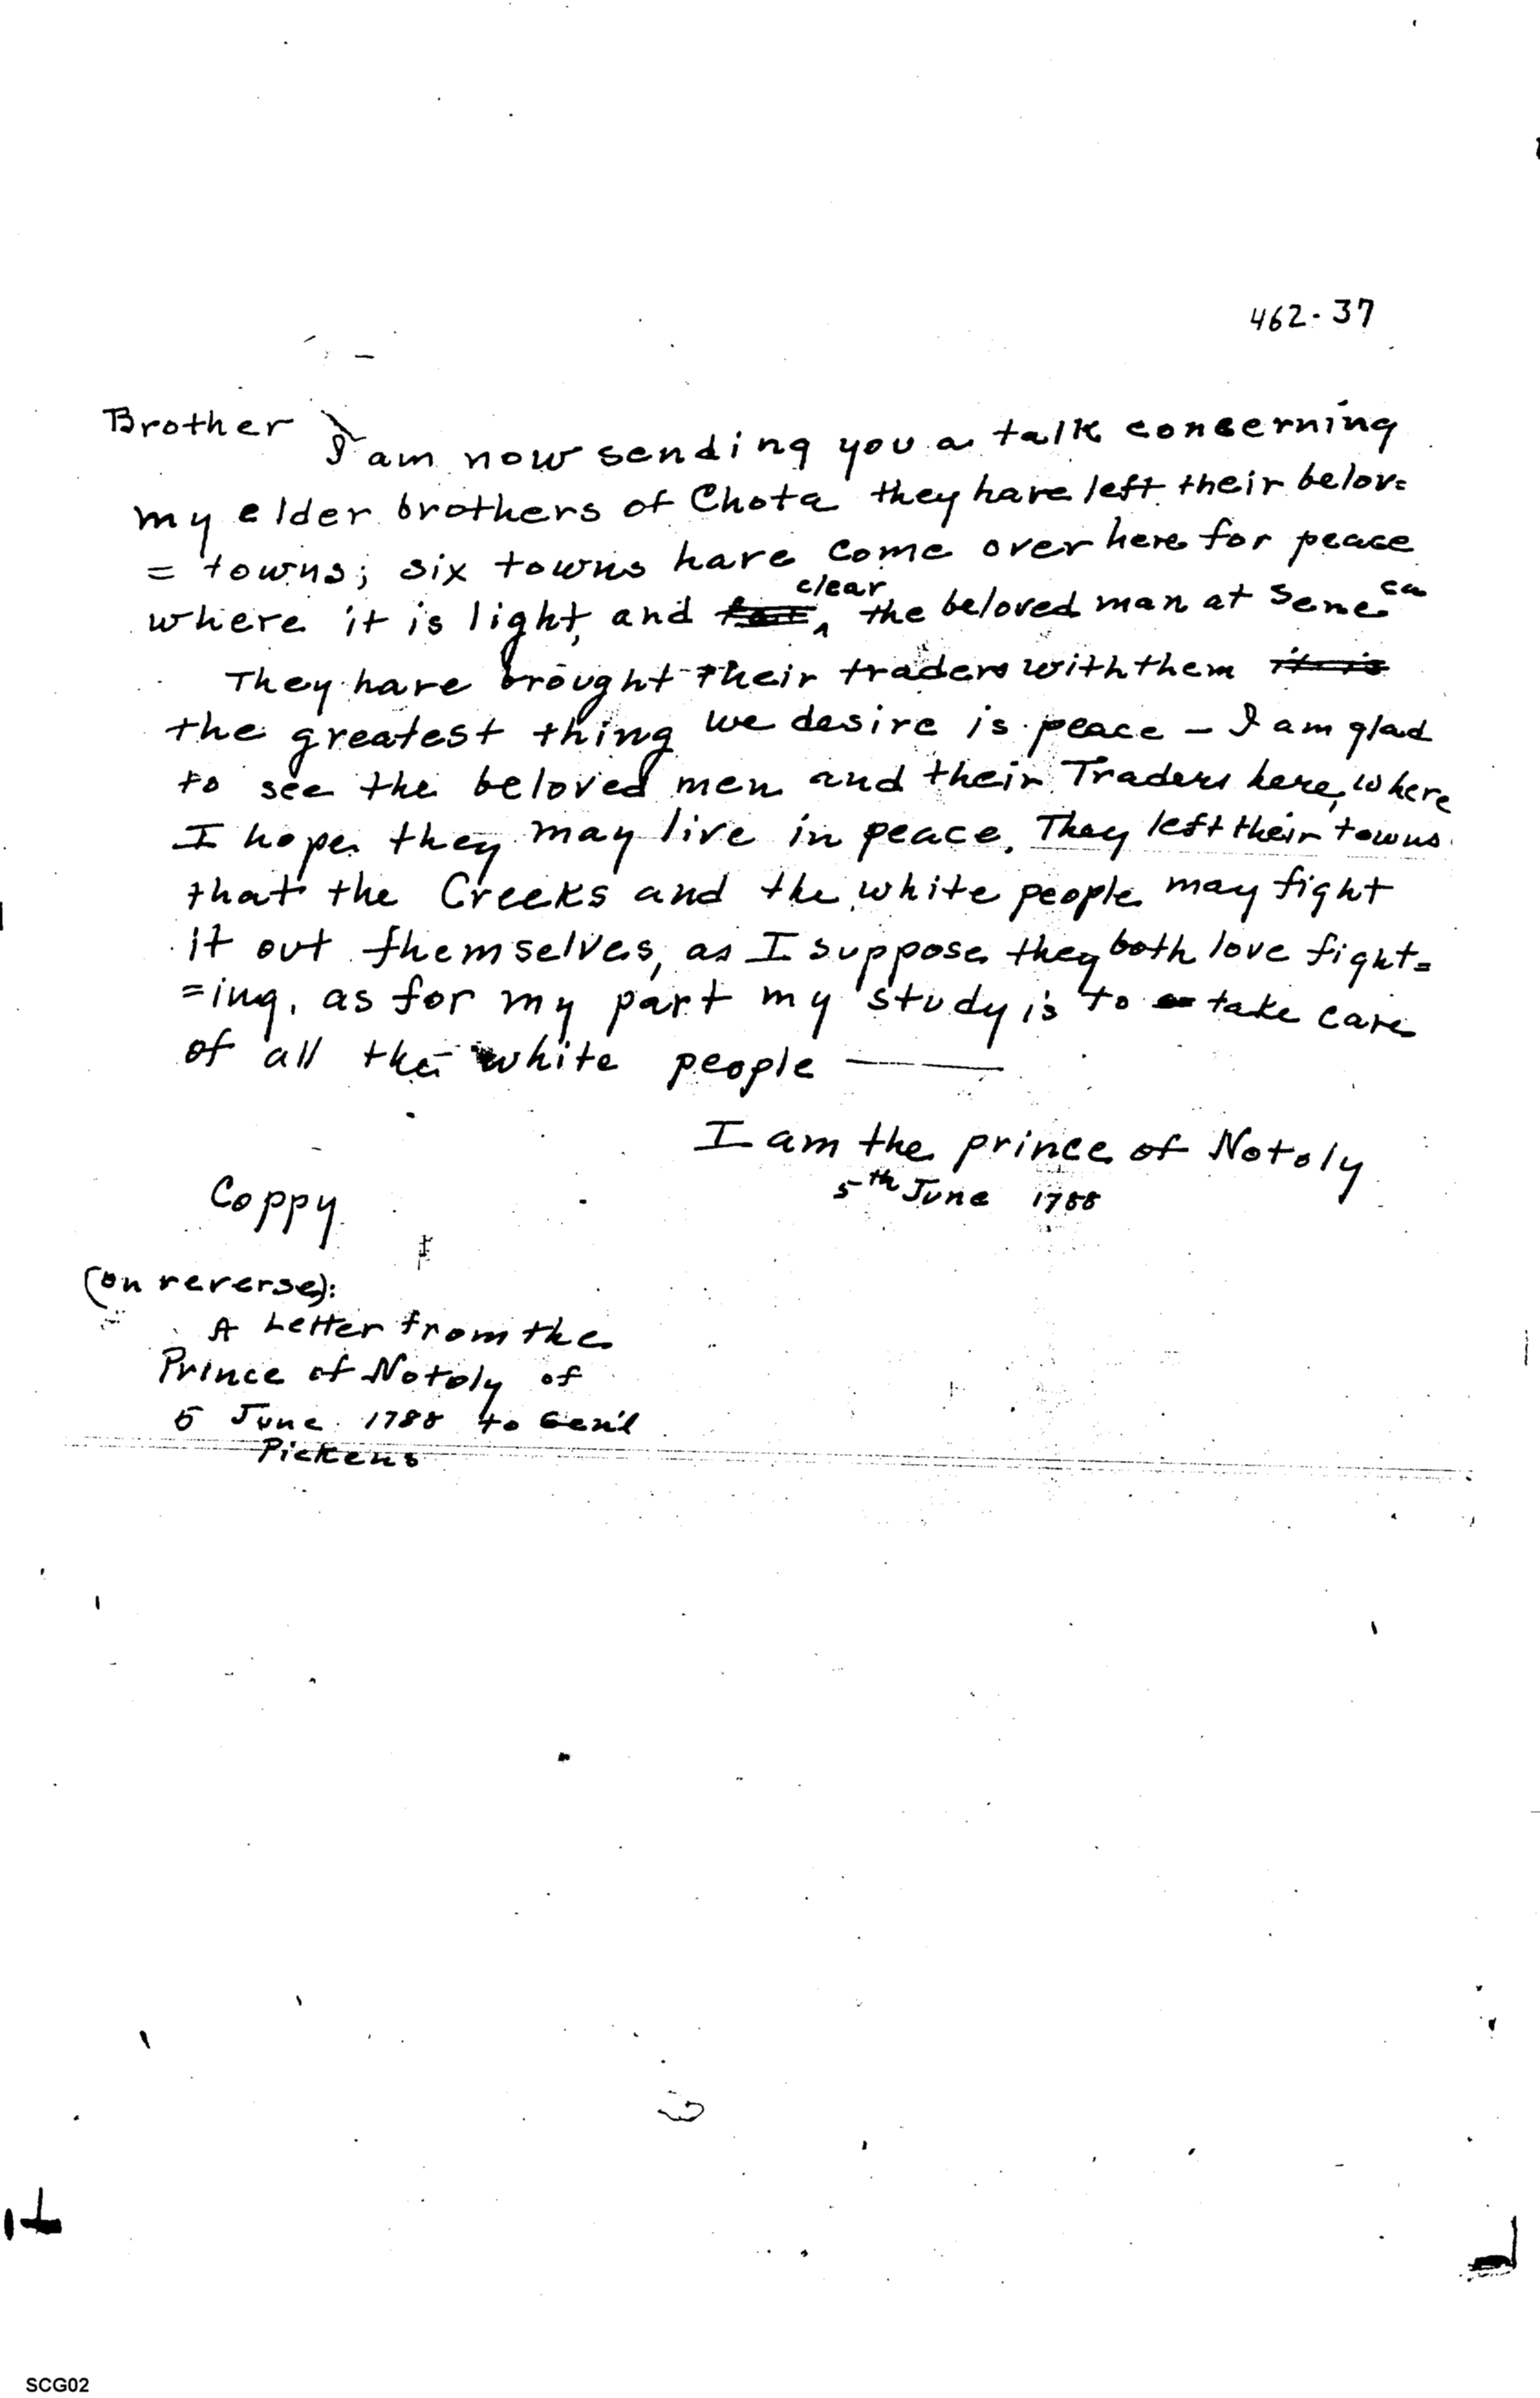 462-37
Brother
I am now sending you a talk concerning
my elder brothers of Chota they have left their belov=
= towns; six towns have come over here for peace
where it is light, and clear the beloved man at Seneca
They have brought their traders with them it is
the greatest thing we desire is peace – I am glad
to see the beloved men and their Traders here, where
I hope they may live in peace. They left their towns
that the Creeks and the white people may fight
it out themselves, as I suppose they both love fight=
=ing, as for my part my study is to take care
of all the white people ——
I am the prince of Notoly
5th June 1788
Coppy
(on reverse):
A Letter from the
Prince of Notoly of
5 June 1788 to Gen'l
Pickens
SCG02